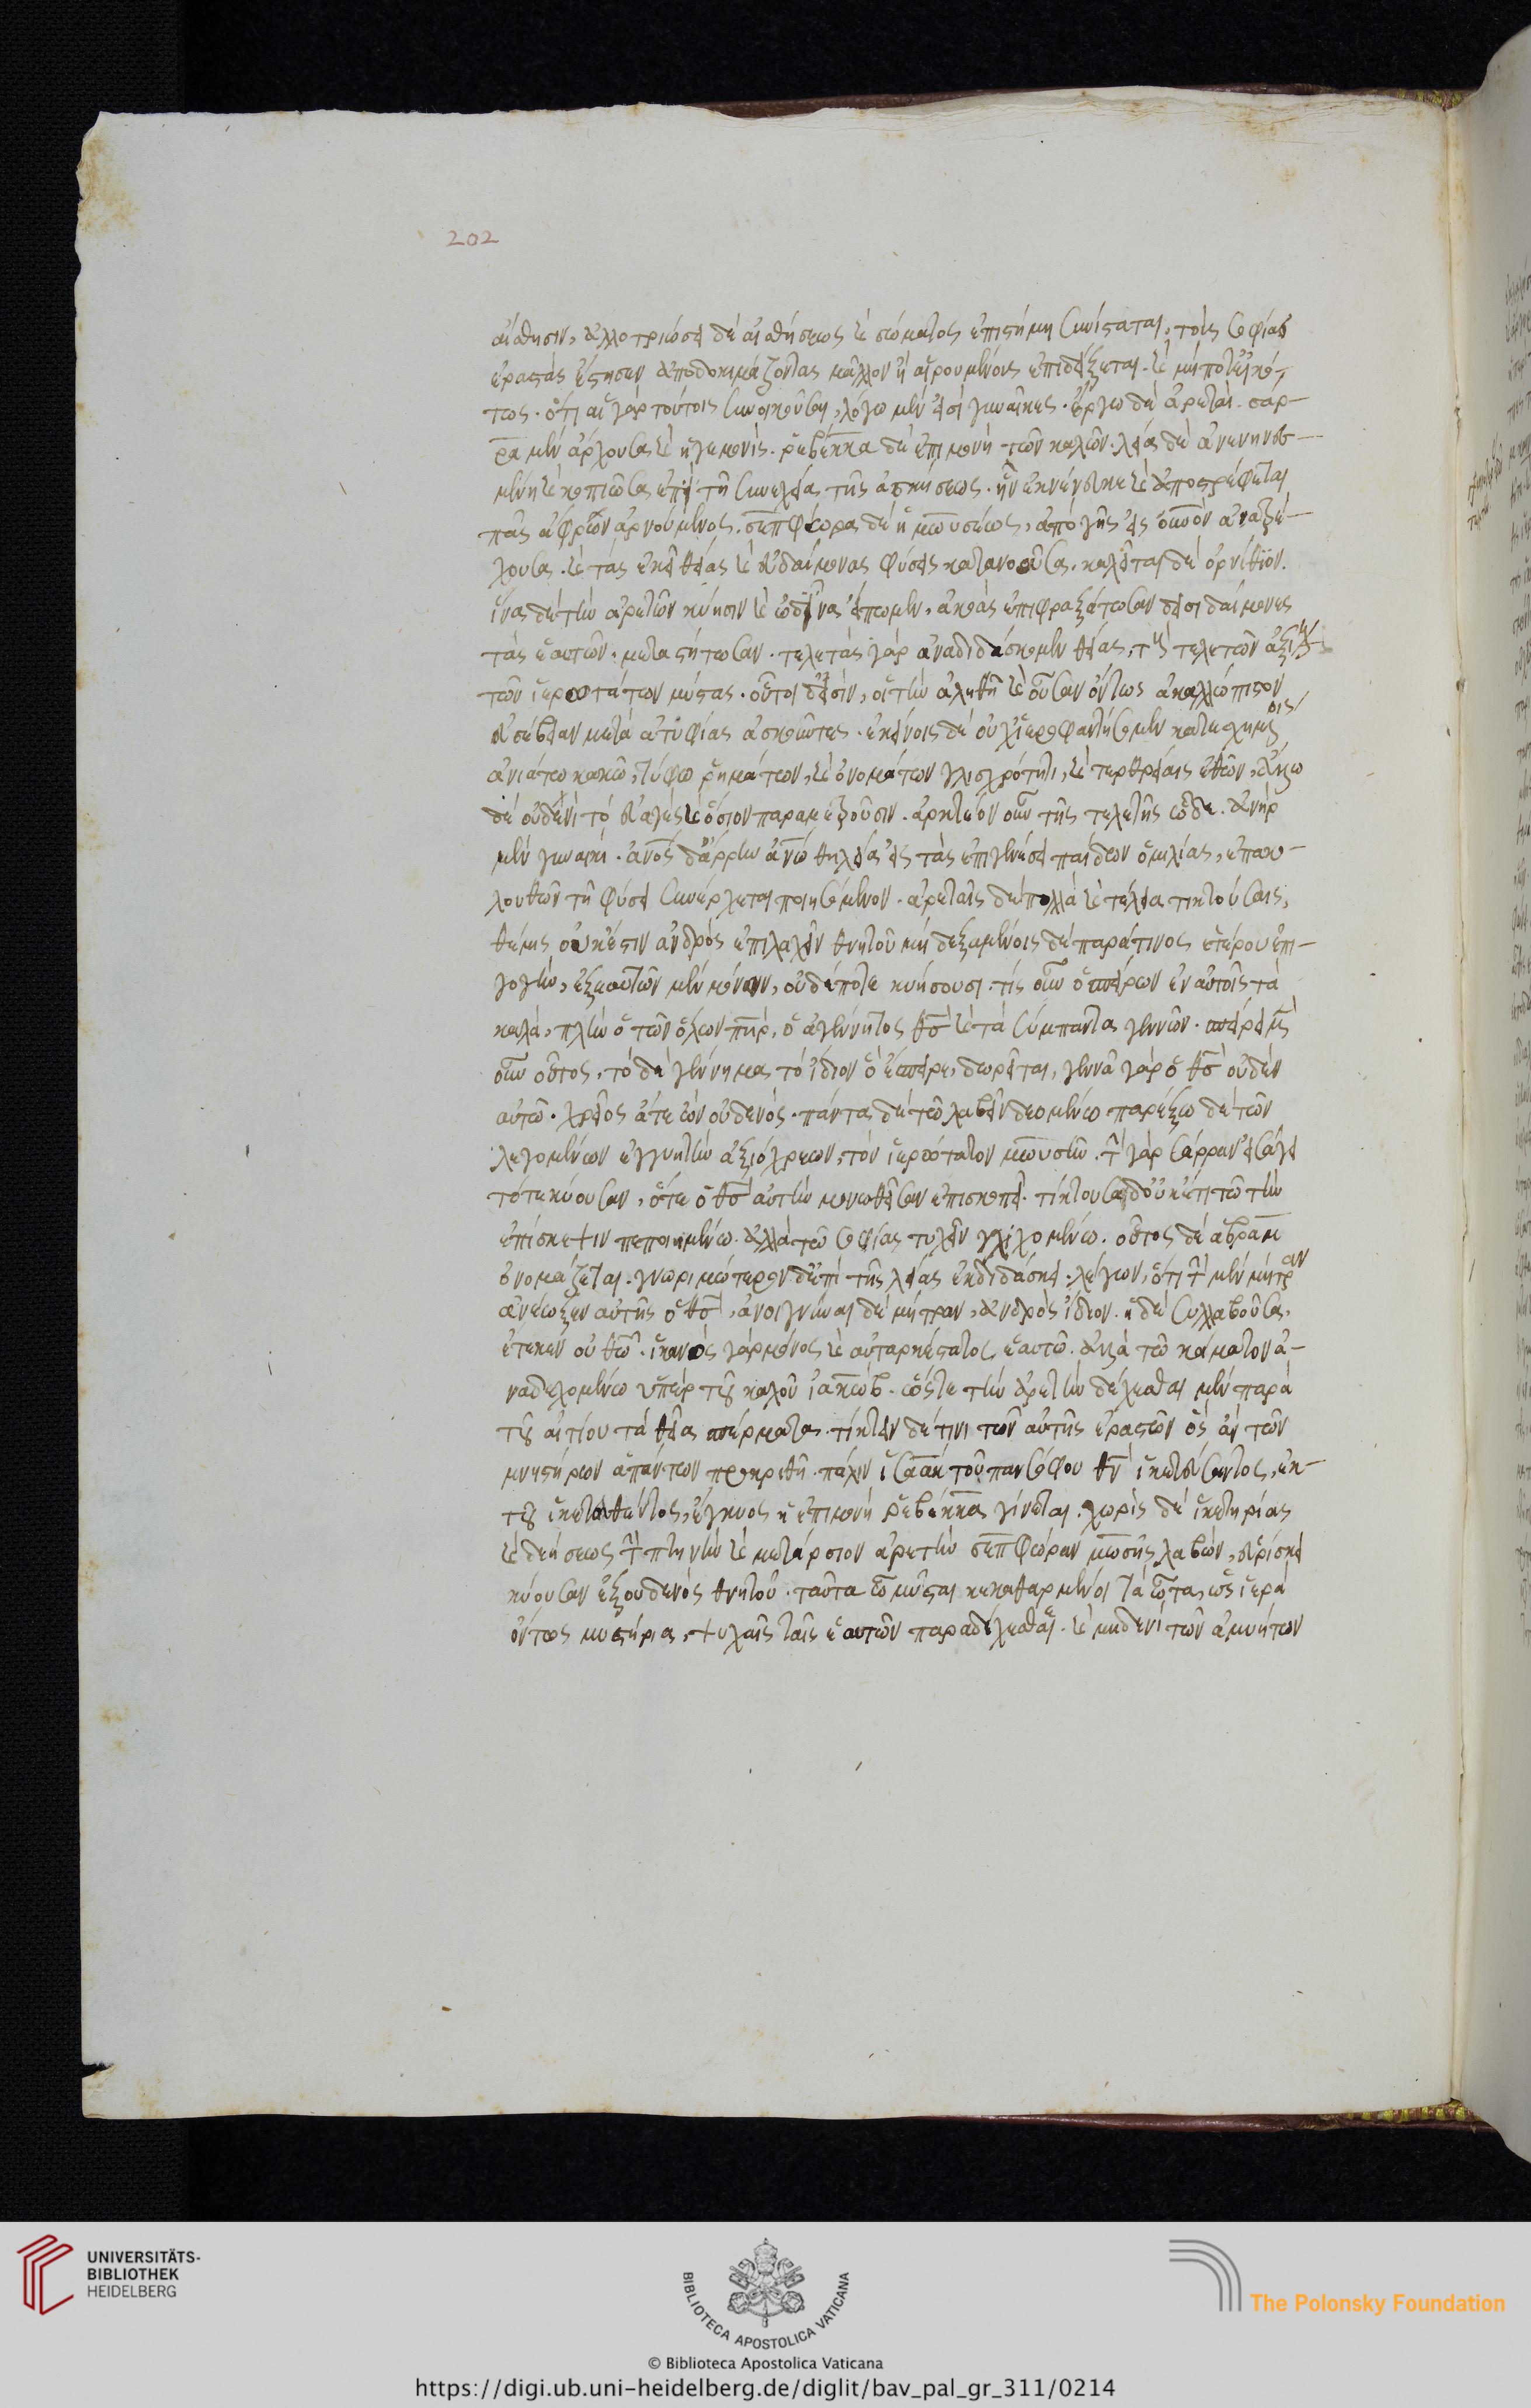 202
αἴσθησιν, ἀλλοτριώσει δὲ αἰσθήσεως καὶ σώματος ἐπιστήμη συνίσταται, τοὺς σοφίας
ἐραστὰς ἔστησεν ἀποδοκιμάζοντας μᾶλλον ἢ αἱρουμένους ἐπιδείξεται. καὶ μήποτε εἰκό-
τως. ὅτι αἱ γὰρ τούτοις συνοικοῦσαι, λόγω μέν εἰσι γυναῖκες. ἔργω δὲ ἀρεταὶ. σάρ-
ρα μὲν ἄρχουσα καὶ ἡγεμονίς. ῥεβέκκα δὲ ἐπιμονὴ τῶν καλῶν. λεία δὲ ἀνανευο-
μένη καὶ κοπιῶσα ἐπὶ τῆ συνεχεία τῆς ἀσκήσεως. ἣν ἐκνένευκε καὶ ἀποστρέφεται
πᾶς ἄφρων ἀρνούμενος. σεπφώρα δὲ ἡ μωυσέως, ἀπὸ γῆς εἰς οὐνὸν ἀνατρέ-
χουσα. καὶ τὰς ἐκεῖ θείας καὶ εὐδαίμονας φύσεις κατανοοῦσα. καλεῖται δὲ ὀρνίθιον.
ἵνα δὲ τὴν ἀρετῶν κύησιν καὶ ὠδῖνας εἴπωμεν, ἀκοὰς ἐπιφραξάτωσαν δεισιδαίμονες
τὰς ἑαυτῶν. μεταστήτωσαν. τελετὰς γὰρ ἀναδιδάσκομεν θείας, τοὺς τελετῶν ἀξίους
τῶν ἱερωτάτων μύστας. οὗτοι δ' εἰσὶν, οἱ τὴν ἀληθῆ καὶ οὖσαν ὄντως ἀκαλλώπιστον
εὐσέβειαν μετὰ ἀτυφίας ἀσκοῦντες. ἐκείνοις δὲ οὐχ ἱεροφαντήσομεν κατεσχημένοις
ἀνιάτω κακῶ, τύφω ῥημάτων, καὶ ὀνομάτων γλισχρότητι, καὶ τερθρείαις ἐθῶν, ἄλλω
δὲ οὐδενὶ τὸ εὐαγὲς καὶ ὅσιον παραμετροῦσιν. ἀρκτέον οὖν τῆς τελετῆς ὧδε. ἀνὴρ
μὲν γυναικὶ. ἄνος δ' ἄρρην ἀνω θηλεία εἰς τὰς ἐπὶ γενέσει παίδων ὁμιλίας, ἐπακο-
λουθῶν τῆ φύσει συνέρχεται ποιησόμενον. ἀρεταῖς δὲ πολλὰ καὶ τέλεια τικτούσαις,
θέμις οὐκ ἔστιν ἀνδρὸς ἐπιλαχεῖν θνητοῦ μὴ δεξαμένοις δὲ παρά τινος ἑτέρου ἐπι-
γονὴν, ἐξ ἑαυτῶν μὲν μόνων, οὐδέποτε κυήσουσι. τίς οὖν ὁ σπείρων ἐν αὐτοῖς τὰ
καλὰ, πλὴν ὁ τῶν ὅλων πηρ, ὁ ἀγέννητος θς καὶ τὰ σύμπαντα γεννῶν. σπείρει μὲν
οὖν οὗτος, τὸ δὲ γέννημα τὸ ἴδιον ὃ ἔσπειρε, δωρεῖται, γεννᾶ γὰρ ὁ θς οὐδὲν
αὐτῶ. χρεῖος ἅτε ὢν οὐδενὸς. πάντα δὲ τῶ λαβεῖν δεομένω παρέξω δὲ τῶν
λεγομένων ἐγγυητὴν ἀξιόχρεων, τὸν ἱερώτατον μωυσῆν. τὴν γὰρ σάρραν εἰσάγει
τότε κύουσαν, ὅτε ὁ θς αὐτὴν μονωθεῖσαν ἐπισκοπεῖ. τίκτουσα δ' οὐκέτι τῶ τὴν
ἐπίσκεψιν πεποιημένω. ἀλλὰ τῶ σοφίας τυχεῖν γλιχομένω. οὗτος δὲ ἀβραὰμ
ὀνομάζεται. γνωριμώτερον δ' ἐπὶ τῆς λείας ἐκδιδάσκει. λέγων, ὅτι τὴν μὲν μήτραν
ἀνέωξεν αὐτῆς ὁ θς, ἀνοιγνῦναι δὲ μήτραν, ἀνδρὸς ἴδιον. ἡ δὲ συλλαβοῦσα,
ἔτεκεν οὐ θῶ. ἱκανὸς γὰρ μόνος καὶ αὐταρκέστατος ἑαυτῶ. ἀλλὰ τῶ κάματον ἀ-
ναδεχομένω ὑπὲρ τοῦ καλοῦ ἰακώβ. ὥστε τὴν ἀρετὴν δέχεσθαι μὲν παρὰ
τοῦ αἰτίου τὰ θεῖα σπέρματα. τίκτειν δέ τινι τῶν αὐτῆς ἐραστῶν ὃς ἂν τῶν
μνηστήρων ἁπάντων προκριθῆ. πάλιν ἰσαὰκ τοῦ πανσόφου θν ἱκετεύσαντος, ἐκ
τοῦ ἱκετευθέντος, ἔγκυος ἡ ἐπιμονὴ ῥεβέκκα γίνεται. χωρὶς δὲ ἱκετηρίας
καὶ δεήσεως τὴν πτηνὴν καὶ μετάρσιον ἀρετὴν σεπφώραν μωσῆς λαβὼν, εὑρίσκει
κύουσαν ἐξ οὐδενὸς θνητοῦ. ταῦτα ὦ μύσται κεκαθαρμένοι τὰ ὦτα, ὡς ἱερὰ
ὄντως μυστήρια, ψυχαῖς ταῖς ἑαυτῶν παραδέχεσθαι. καὶ μηδενὶ τῶν ἀμυήτων
UNIVERSITÄTS-
BIBLIOTHEK
HEIDELBERG
BIBLIOTECA APOSTOLICA VATICANA
The Polonsky Foundation
© Biblioteca Apostolica Vaticana
https://digi.ub.uni-heidelberg.de/diglit/bav_pal_gr_311/0214